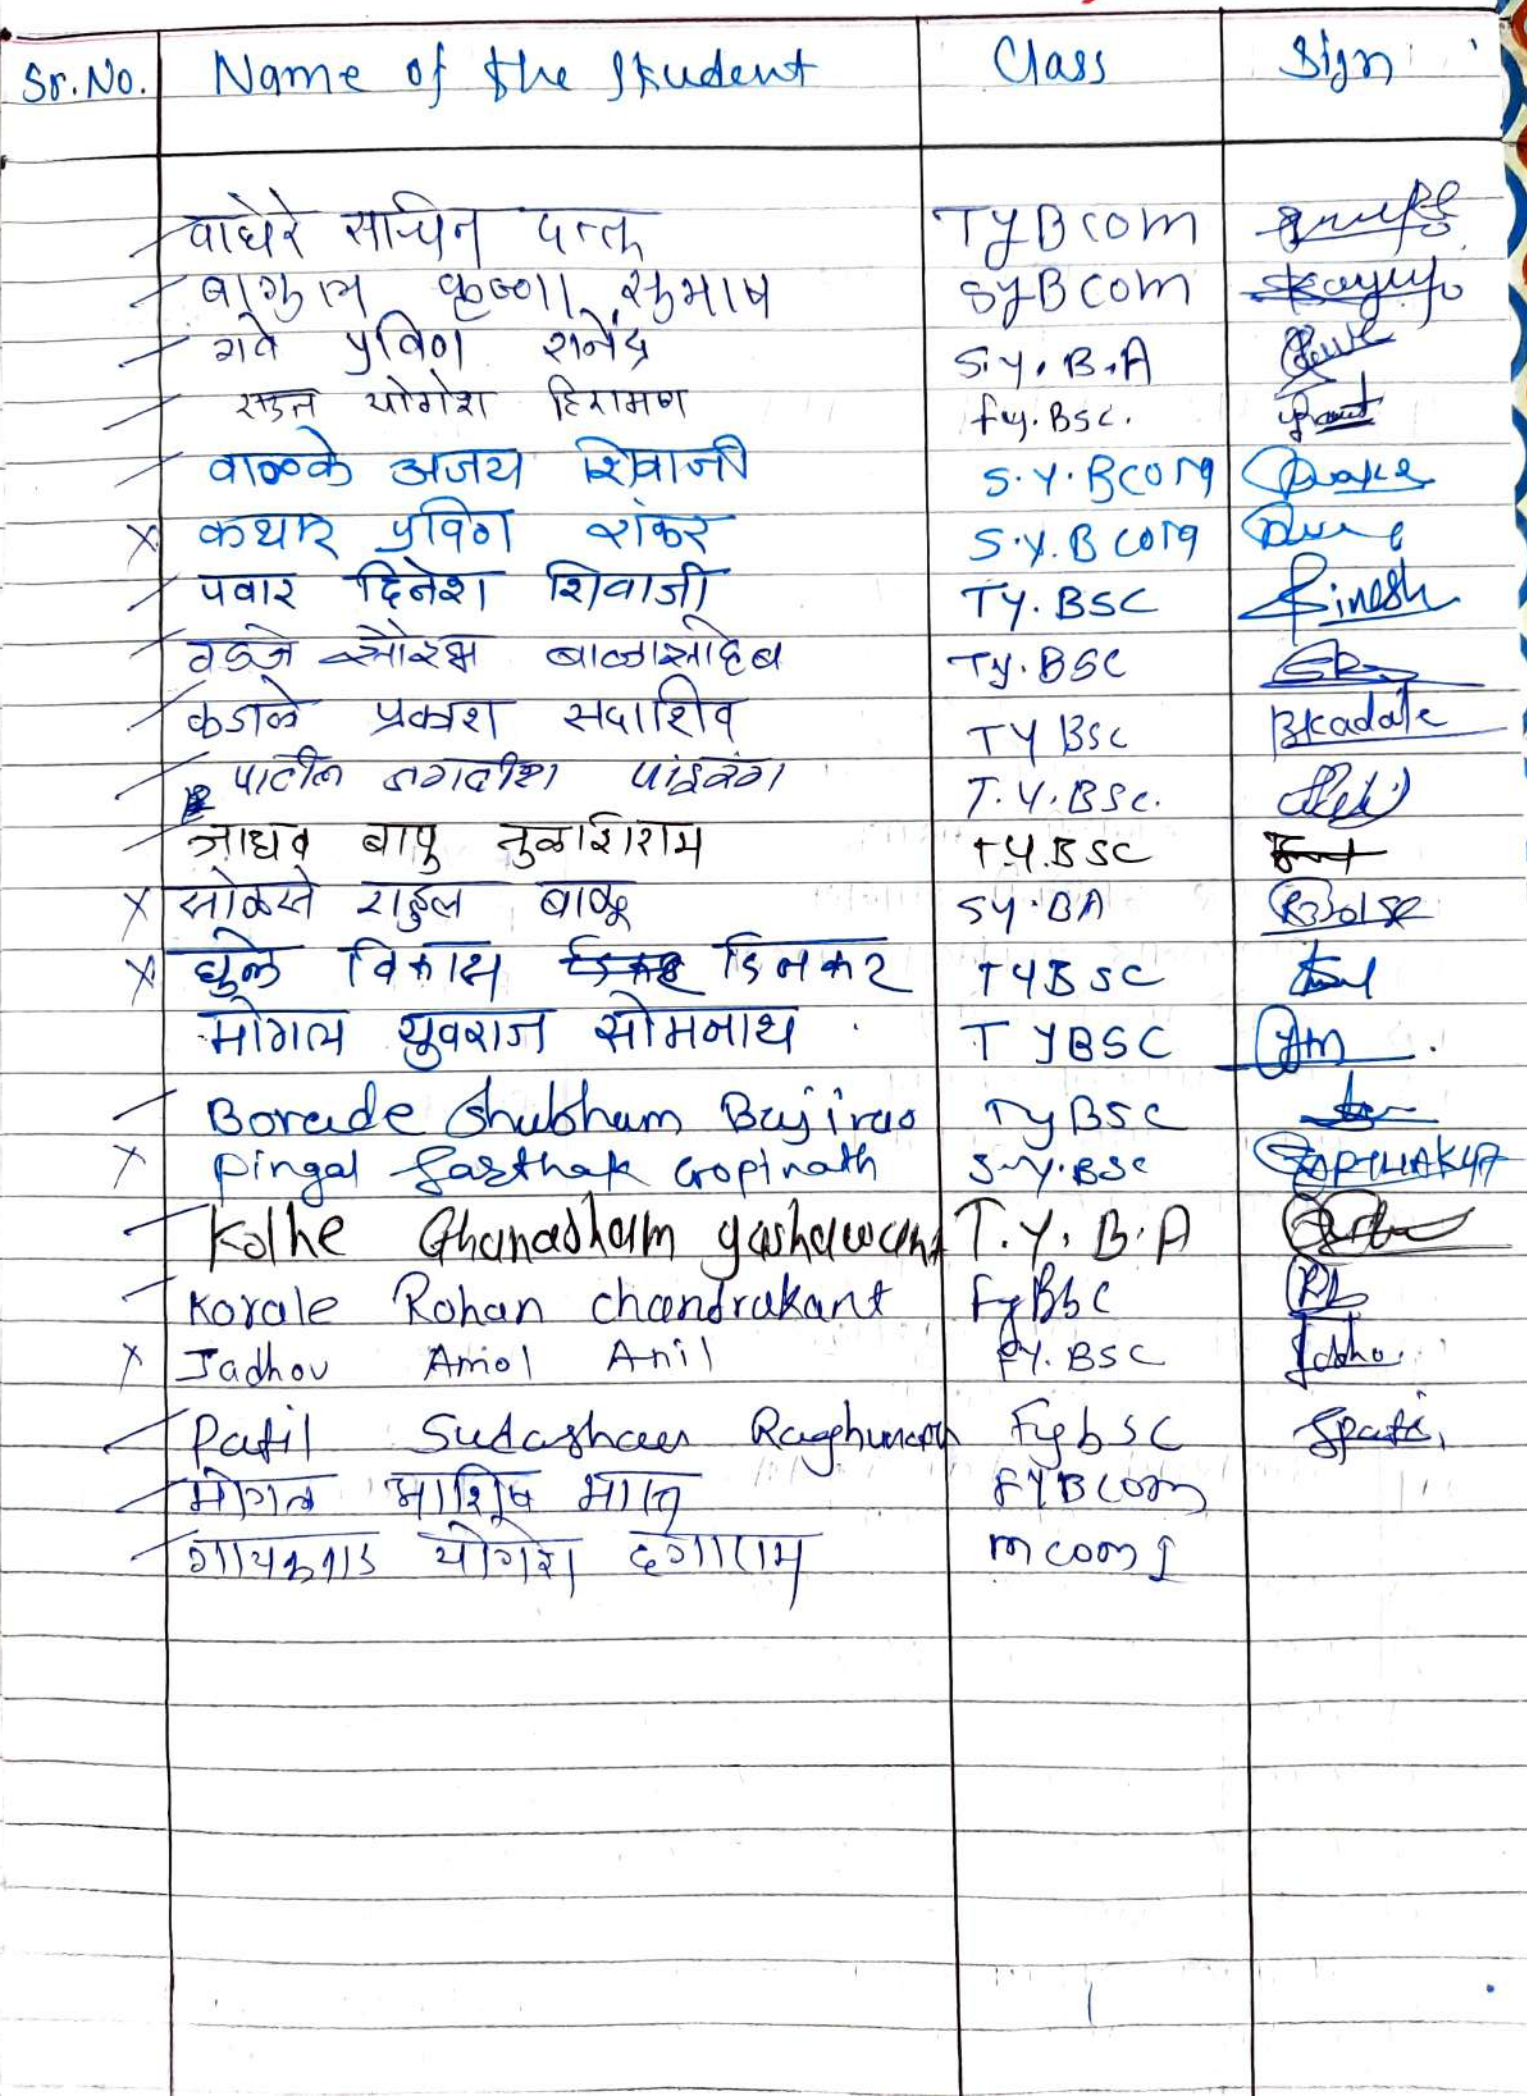 Sr.No. Name of the Student Class Sign
वाघेरे सचिन दत्तू TYBCOM
बागुल कृष्णा सुभाष SYBCOM
गवे प्रविण राजेंद्र S.Y.B.A
राऊत योगेश हिरामण Fy.BSc.
वाळके अजय शिवाजी S.Y.BCOM
X कथार प्रविण शंकर S.Y.BCOM
पवार दिनेश शिवाजी TY.BSC Dinesh
वडजे सौरभ बाळासाहेब Ty.BSC
कडाळे प्रकाश सदाशिव TY BSC
पाटील जगदीश पांडुरंग T.Y.BSC.
जाधव बापु तुळशिराम T.Y.BSC
X सोळसे राहुल बाळू SY.BA
X घुले विकास दिनकर TYBSC
मोगल युवराज सोमनाथ TYBSC
Borade Shubham Bajirao TyBSC
X Pingal Sarthak Gopinath S.Y.BSC
Kolhe Ghanasham yashawant T.Y.B.A
Korale Rohan chandrakant FyBSC
X Jadhav Amol Anil FY.BSC
Patil Sudashan Raghunath FybSC Spatil
मोगल आशिष FYBCOM
गायकवाड योगेश दगाराम MCOM I